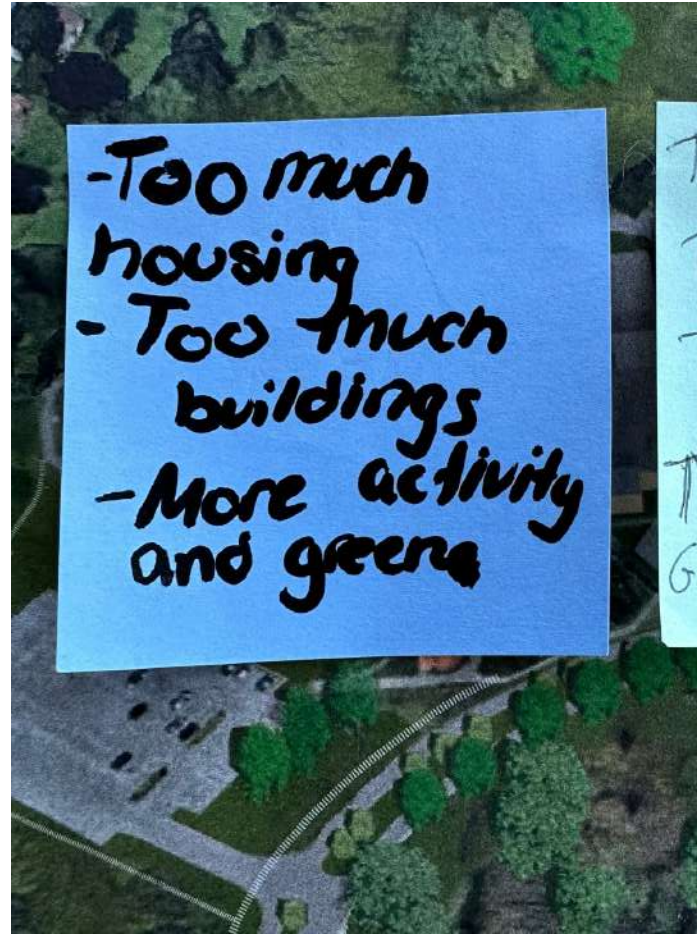 -Too much
housing
- Too much
buildings
-More activity
and green